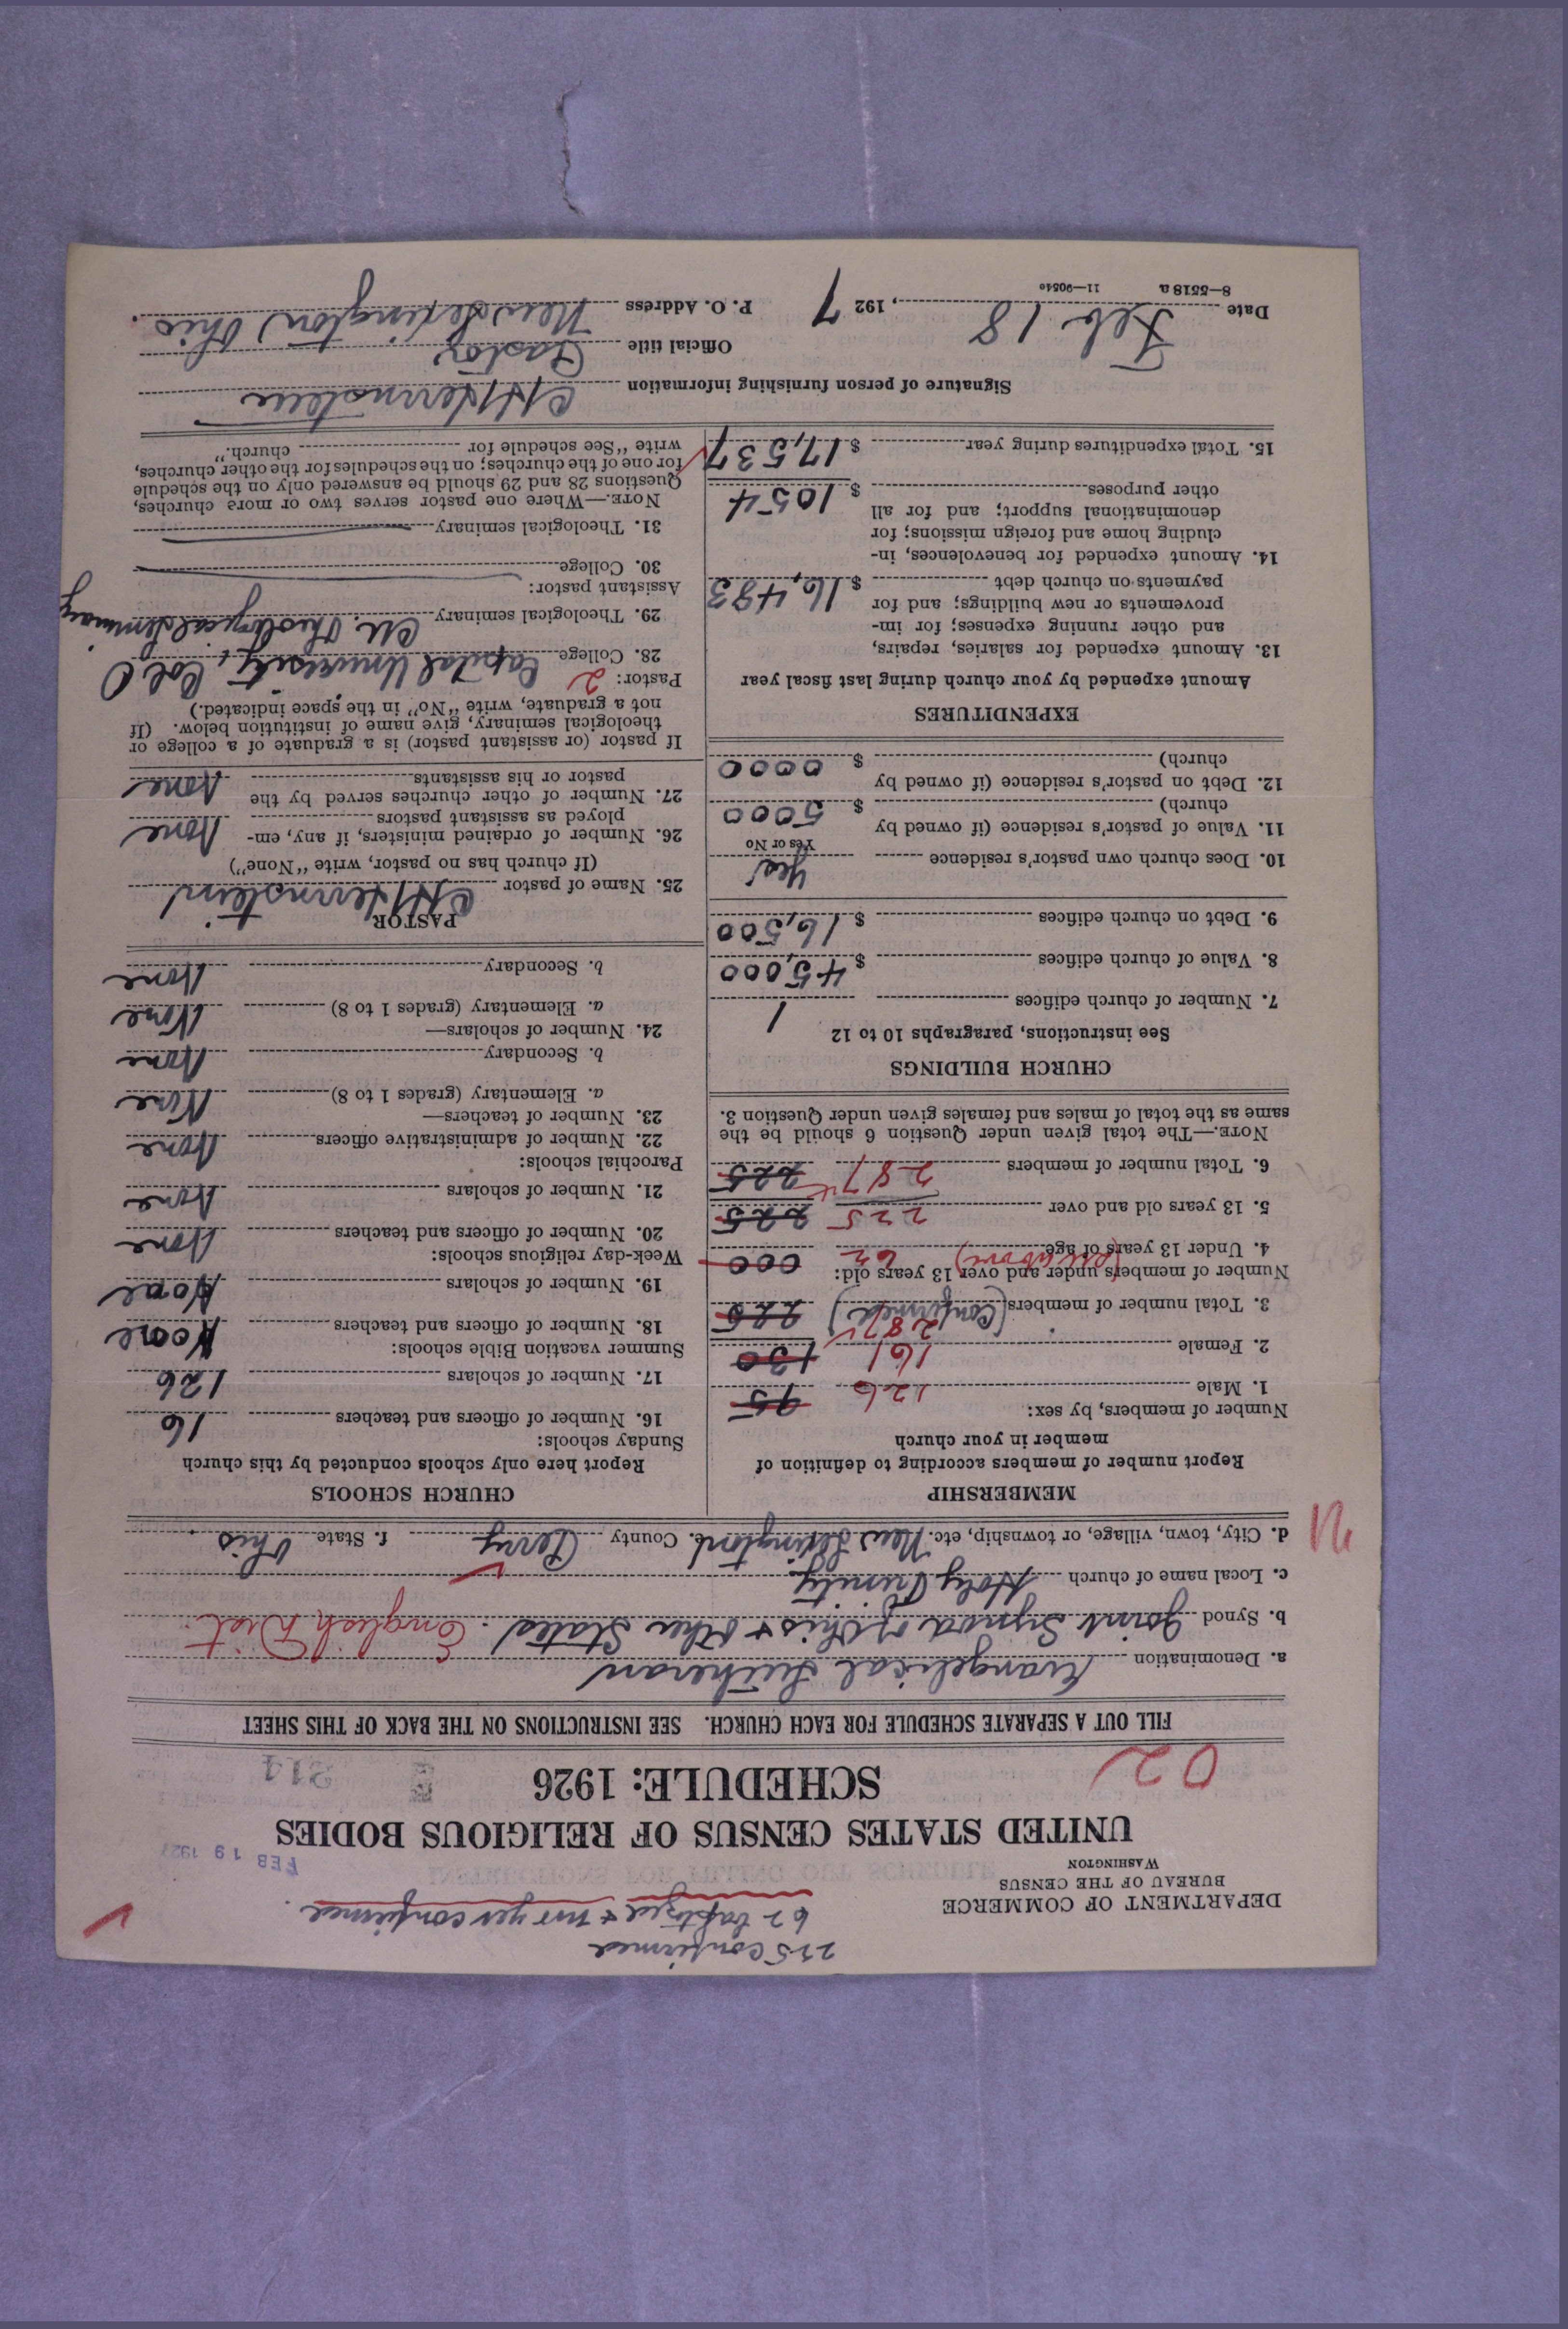 225 confirmed
62 baptized & not yet confirmed.
DEPARTMENT OF COMMERCE
BUREAU OF THE CENSUS
WASHINGTON
FEB 19 1927
UNITED STATES CENSUS OF RELIGIOUS BODIES
SCHEDULE: 1926
02
314
FILL OUT A SEPARATE SCHEDULE FOR EACH CHURCH. SEE INSTRUCTIONS ON THE BACK OF THIS SHEET
a. Denomination Evangelical Lutheran
b. Synod Joint Synod of Ohio & Other States. English Dist.
c. Local name of church Holy Trinity
d. City, town, village, or township, etc. New Lexington e. County Perry f. State Ohio
MEMBERSHIP
Report number of members according to definition of
member in your church
Number of members, by sex:
1. Male 126 95
2. Female 161 130
287
3. Total number of members (Confirmed) 225
Number of members under and over 13 years old:
(see above)
4. Under 13 years of age 62 000
5. 13 years old and over 225 225
6. Total number of members 287 225
NOTE.—The total given under Question 6 should be the
same as the total of males and females given under Question 3.
CHURCH BUILDINGS
See instructions, paragraphs 10 to 12
7. Number of church edifices 1
8. Value of church edifices $ 45,000
9. Debt on church edifices $ 16,500
10. Does church own pastor's residence Yes
Yes or No
11. Value of pastor's residence (if owned by
church) $ 5000
12. Debt on pastor's residence (if owned by
church) $ 0000
EXPENDITURES
Amount expended by your church during last fiscal year
13. Amount expended for salaries, repairs,
and other running expenses; for im-
provements or new buildings; and for
payments on church debt $ 16,483
14. Amount expended for benevolences, in-
cluding home and foreign missions; for
denominational support; and for all
other purposes $ 1054
15. Total expenditures during year $ 17,537
CHURCH SCHOOLS
Report here only schools conducted by this church
Sunday schools:
16. Number of officers and teachers 16
17. Number of scholars 126
Summer vacation Bible schools:
18. Number of officers and teachers None
19. Number of scholars None
Week-day religious schools:
20. Number of officers and teachers None
21. Number of scholars None
Parochial schools:
22. Number of administrative officers None
23. Number of teachers—
a. Elementary (grades 1 to 8) None
b. Secondary None
24. Number of scholars—
a. Elementary (grades 1 to 8) None
b. Secondary None
PASTOR
25. Name of pastor C H Hernstein
(If church has no pastor, write "None")
26. Number of ordained ministers, if any, em-
ployed as assistant pastors None
27. Number of other churches served by the
pastor or his assistants None
If pastor (or assistant pastor) is a graduate of a college or
theological seminary, give name of institution below. (If
not a graduate, write "No" in the space indicated.)
Pastor: 2
28. College Capital University, Col O
29. Theological seminary Theological Seminary
Assistant pastor:
30. College
31. Theological seminary
NOTE.—Where one pastor serves two or more churches,
Questions 28 and 29 should be answered only on the schedule
for one of the churches; on the schedules for the other churches,
write "See schedule for church."
Signature of person furnishing information C H Hernstein
Official title Pastor
Date Feb 18, 1927 P. O. Address New Lexington, Ohio.
8—5518 a 11—9054c